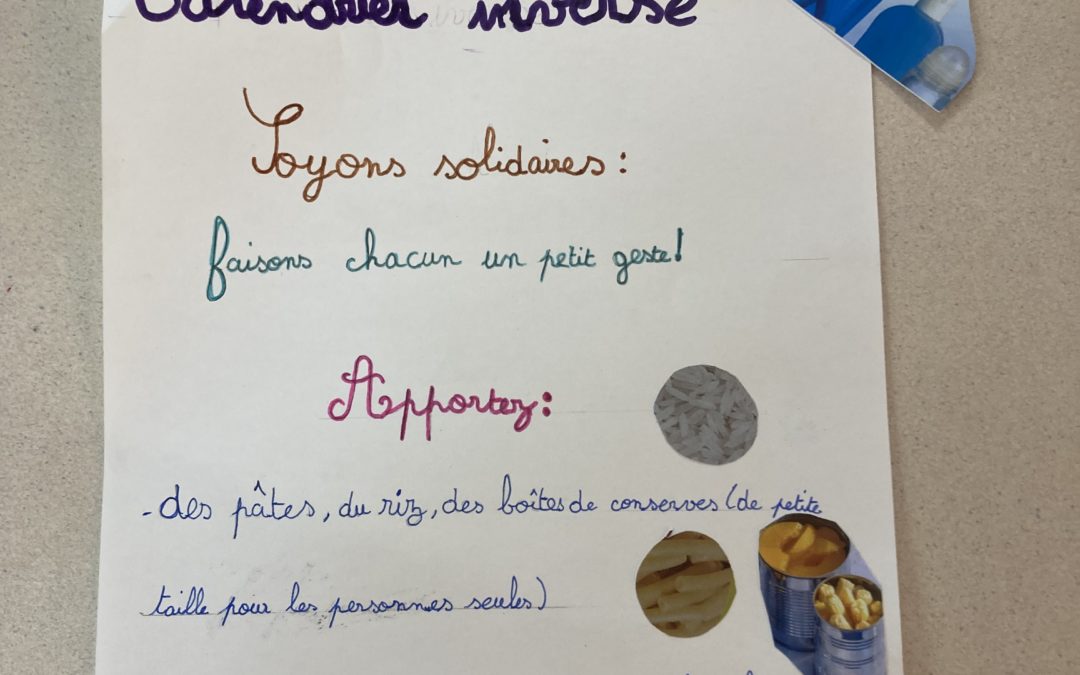 Calendrier inversé
Soyons solidaires :
faisons chacun un petit geste!
Apportez :
- des pâtes, du riz, des boîtes de conserves (de petite
taille pour les personnes seules)